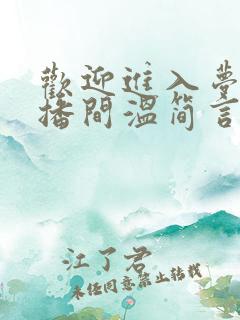 歡迎進入夢
播間溫简言
江了君
未经同意禁止转载